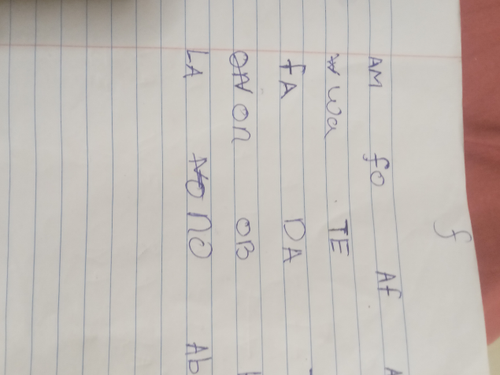 f
AM fo Af
Wa TE
fA DA
on OB
LA no Ab